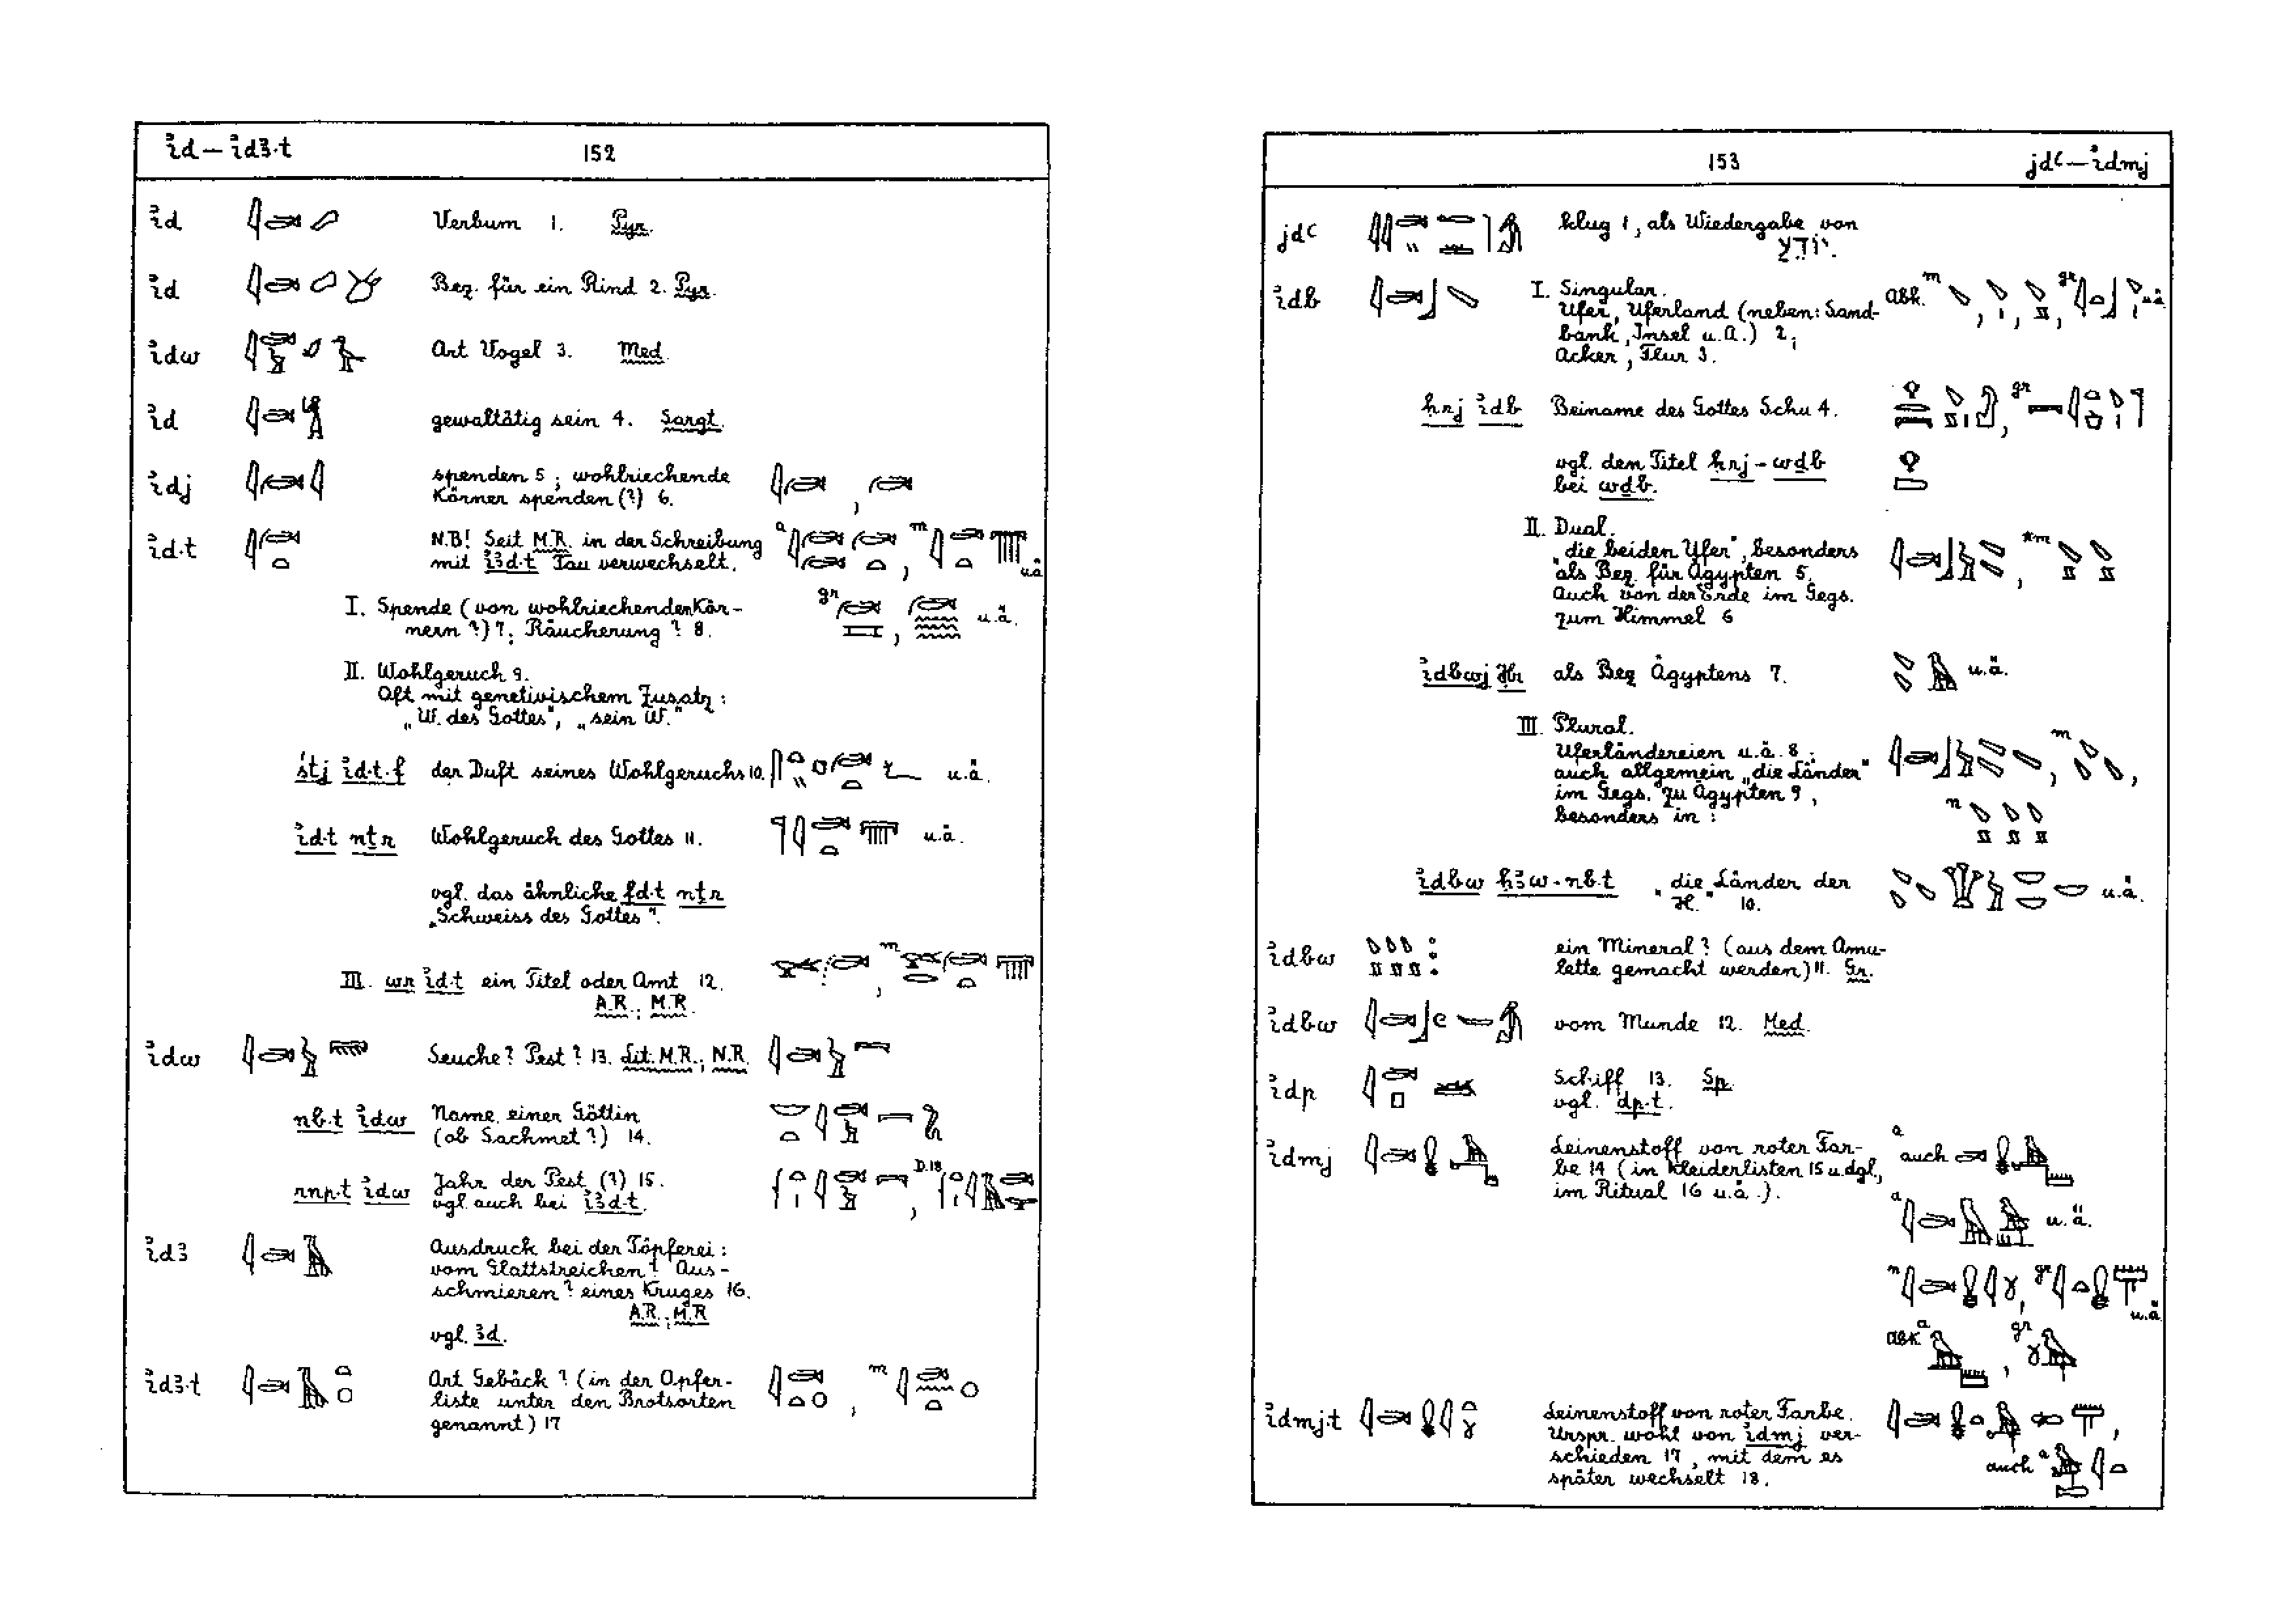 ỉd — ỉdꜣ·t 152
ỉd Verbum 1. Pyr.
ỉd Bez. für ein Rind 2. Pyr.
ỉdw Art Vogel 3. Med.
ỉd gewaltätig sein 4. Sargt.
ỉdj spenden 5; wohlriechende
Körner spenden (?) 6.
ỉd·t N.B! Seit M.R. in der Schreibung
mit ỉꜣd·t Tau verwechselt. u.ä
I. Spende (von wohlriechenden Kör-
nern?) 7; Räucherung? 8. gr u.ä.
II. Wohlgeruch 9.
Oft mit genetivischem Zusatz:
„W. des Gottes", „sein W."
śtj ỉd·t·f der Duft seines Wohlgeruchs 10. u.ä.
ỉd·t nṯr Wohlgeruch des Gottes 11. u.ä.
vgl. das ähnliche fd·t nṯr
„Schweiss des Gottes".
III. wr ỉd·t ein Titel oder Amt 12.
A.R.; M.R.
ỉdw Seuche? Pest? 13. Lit. M.R.; N.R.
nb·t ỉdw Name einer Göttin
(ob Sachmet?) 14.
rnp·t ỉdw Jahr der Pest (?) 15. D.18
vgl. auch bei ỉꜣd·t.
ỉdꜣ Ausdruck bei der Töpferei:
vom Glattstreichen? Aus-
schmieren? eines Kruges 16.
A.R.; M.R
vgl. ꜣd.
ỉdꜣ·t Art Gebäck? (in der Opfer-
liste unter den Brotsorten
genannt) 17
153 jdꜥ — ỉdmj
jdꜥ klug 1, als Wiedergabe von
יֹדֵעַ.
ỉdb I. Singular. abk. m gr u.ä.
Ufer, Uferland (neben: Sand-
bank, Insel u.a.) 2;
Acker, Flur 3.
ḥrj ỉdb Beiname des Gottes Schu 4. gr
vgl. den Titel ḥrj-wḏb
bei wḏb.
II. Dual.
„die beiden Ufer", besonders
als Bez. für Ägypten 5.
Auch von der Erde im Gegs.
zum Himmel 6
ỉdbwj Ḥr als Bez Ägyptens 7. u.ä.
III. Plural.
Uferländereien u.ä. 8;
auch allgemein „die Länder"
im Gegs. zu Ägypten 9,
besonders in:
ỉdbw ḥꜣw-nb·t „die Länder der u.ä.
H." 10.
ỉdbw ein Mineral? (aus dem Amu-
lette gemacht werden) 11. Gr.
ỉdbw vom Munde 12. Med.
ỉdp Schiff 13. Sp.
vgl. dp·t.
ỉdmj Leinenstoff von roter Far- a auch
be 14 (in Kleiderlisten 15 u.dgl.,
im Ritual 16 u.ä.). a u.ä.
n gr u.ä
abk a gr
ỉdmj·t Leinenstoff von roter Farbe.
Urspr. wohl von ỉdmj ver-
schieden 17, mit dem es
später wechselt 18. auch a